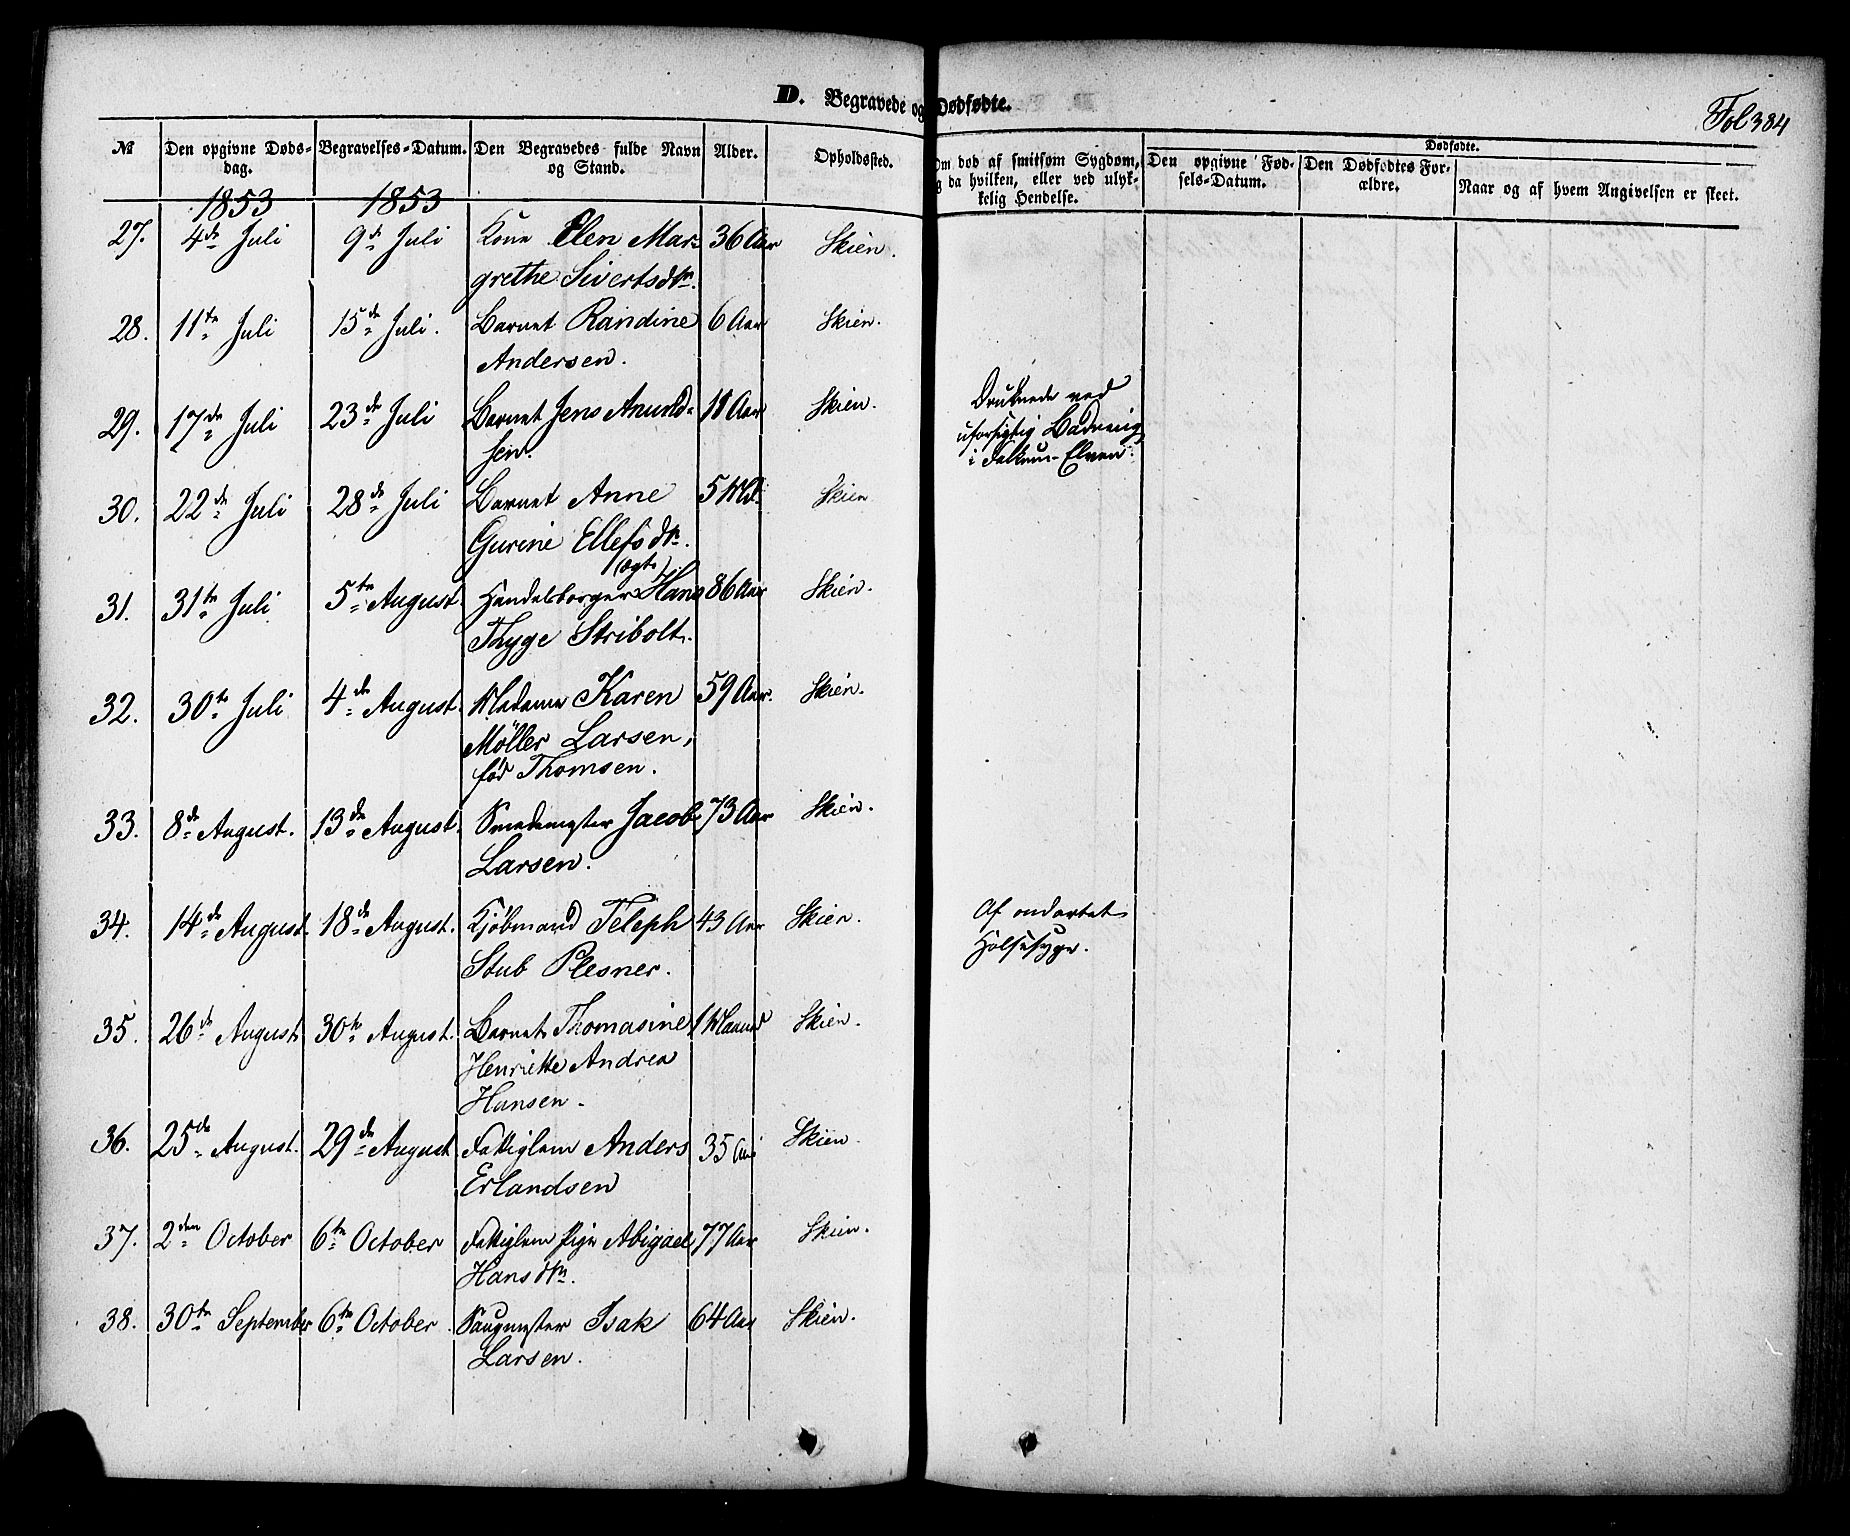 D. Begravede og Dødfødte.
Fol 384
№ Den opgivne Døds- Begravelses-Datum. Den Begravedes fulde Navn Alder. Opholdsted. Om død af smitsom Sygdom, Den opgivne Fød- Den Dødfødtes For- Dødfødte.
dag. og Stand. og da hvilken, eller ved ulyk- sels-Datum. ældre. Naar og af hvem Angivelsen er skeet.
kelig Hendelse.
1853 1853
27. 4de Juli 9de Juli Kone Elen Mar- 36 Aar Skien.
grethe Sivertsdtr.
28. 11te Juli 15de Juli. Barnet Randine 6 Aar Skien.
Andersen.
29. 17de Juli 23de Juli Barnet Jens Amund- 11 Aar Skien. Druknede ved
sen. uforsigtig Badning
i Falkum-Elven.
30. 22de Juli 28de Juli Barnet Anne 5 Md. Skien
Gurine Ellefsdtr.
(ægte)
31. 31te Juli 5te August Handelsborger Hans 86 Aar Skien.
Thyge Stribolt.
32. 30te Juli 4de August. Madame Karen 59 Aar. Skien.
Møller Larsen,
fød Thomsen.
33. 8de August. 13de August. Smedemester Jacob 73 Aar Skien.
Larsen.
34. 14de August. 18de August. Kjøbmand Teleph 43 Aar Skien. Af ondartet
Stub Plesner. Halssyge.
35. 26de August 30te August. Barnet Thomasine 1 Maaned Skien.
Henriette Andrea
Hansen.
36. 25de August. 29de August Fattiglem Anders 35 Aar Skien.
Erlandsen
37. 2den October 6te October Fattiglem Pige Abigael 77 Aar Skien.
Hansdtr.
38. 30te September 6te October. Saugmester Isak 64 Aar Skien.
Larsen.